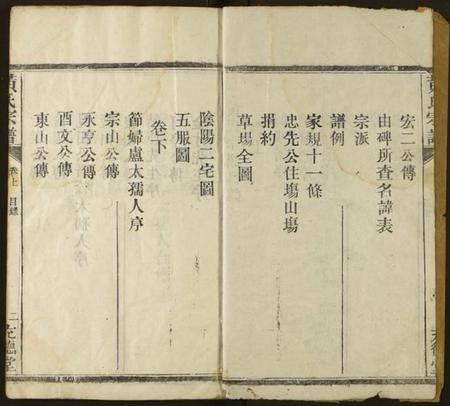 黃氏宗譜
宏二公傳
由碑所查名諱表
宗派
譜例
家規十一條
忠先公住塲山塲
捐約
草塲全圖
陰陽二宅圖
五服圖
卷下
節婦盧太孺人序
宗山公傳
永亨公傳
酉文公傳
東山公傳
黃氏宗譜
卷上 目錄
二